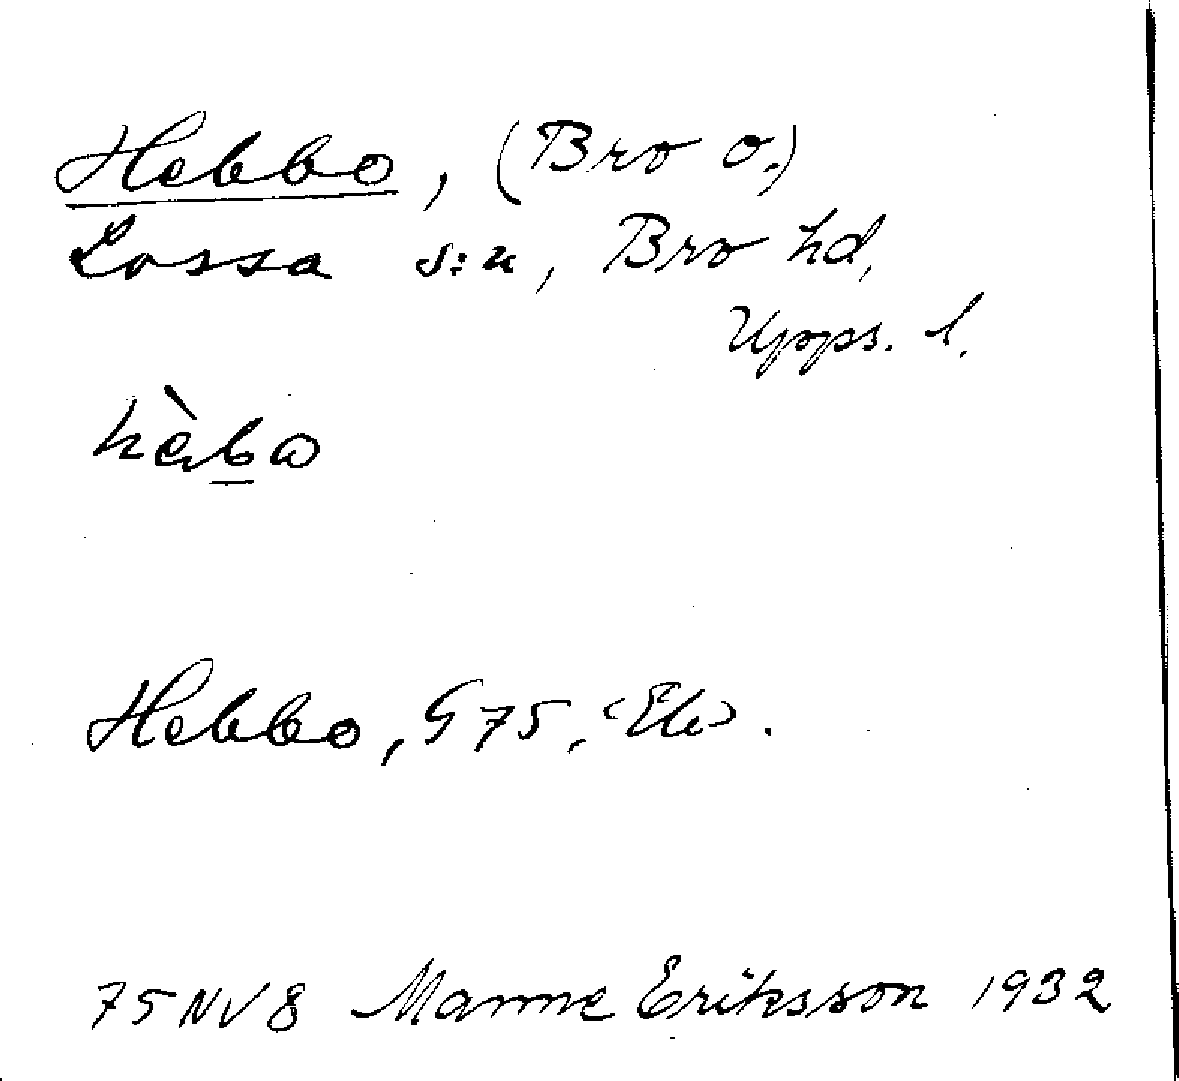 Hebbo, (Bro o.)
Lossa s:n, Bro hd,
Upps. l.
hèbω
Hebbo, G 75, <Ek>.
75 NV 8 Manne Eriksson 1932